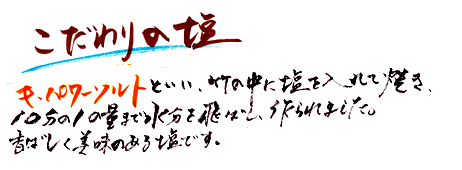 こだわりの塩
キパワーソルトといい、竹の中に塩を入れて焼き、
10分の1の量まで水分を飛ばし、作られました。
香ばしく美味のある塩です。